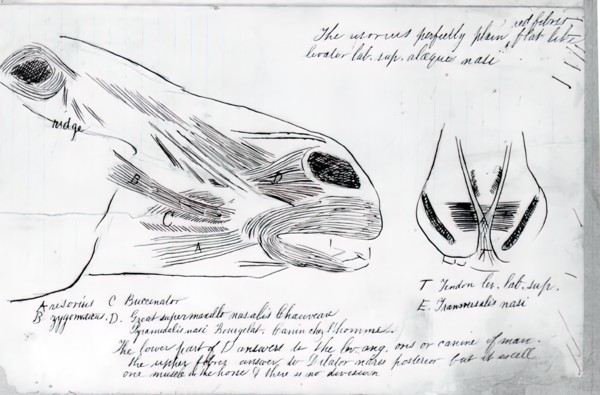 The risorius perfectly plain, red fibres flat lev.
levator lab. sup. alaeque nasi
ridge
B
D
C
A
T Tendon lev. lab. sup.
E. Transversalis nasi
A risorius C Buccinator
B zygomaticus. D. Great supermaxillo nasalis Chauveau
Pyramidalis nasi Bourgelat, Canin chez l'homme.
The lower part of D answers to the lev. ang. oris or canine of man.
the upper fibres answer to Dilator naris posterior but it is all
one muscle in the horse & there is no division